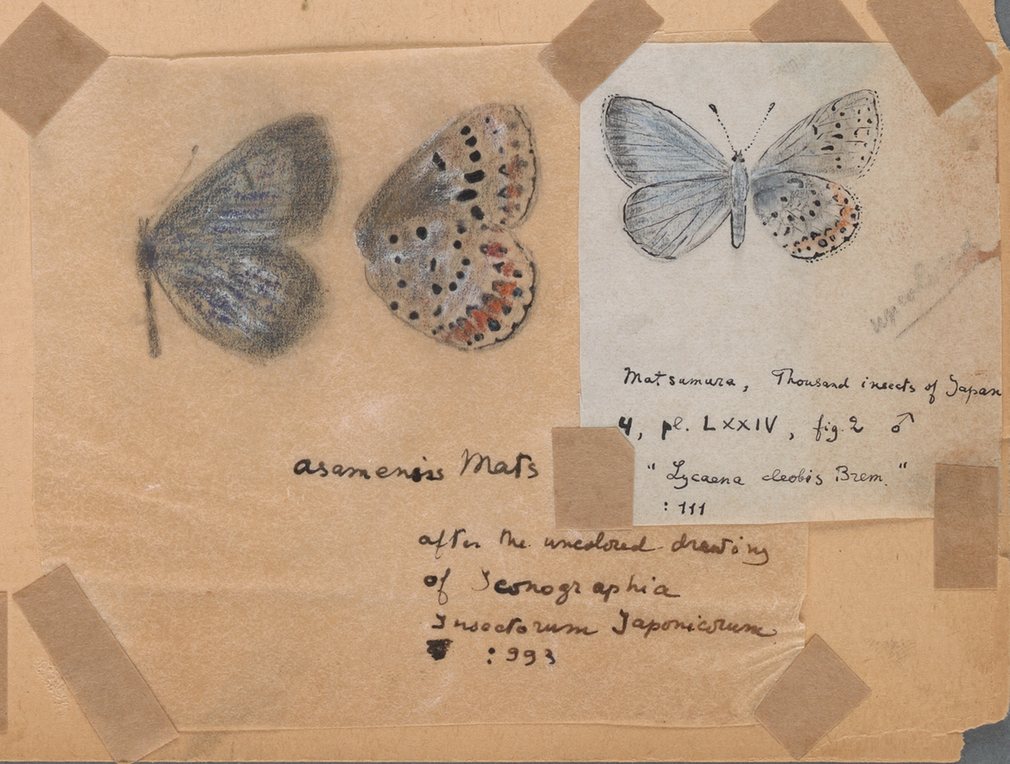 uncolored
Matsumura, Thousand insects of Japan
4, pl. LXXIV, fig. 2 ♂
"Lycaena cleobis Brem."
: 111
asamensis Mats
after the uncolored drawing
of Iconographia
Insectorum Japonicorum
: 993